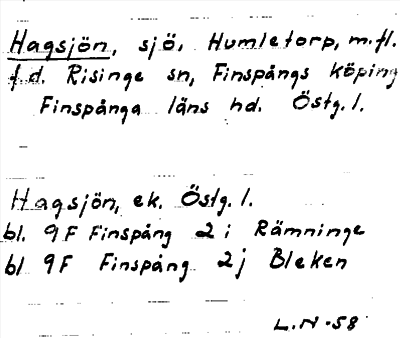 Hagsjön, sjö, Humletorp, m.fl.
f.d. Risinge sn, Finspångs köping
Finspånga läns hd. Östg.l.
Hagsjön, ek. Östg.l.
bl. 9F Finspång 2 i Rämninge
bl 9F Finspång 2j Bleken
L.N-58